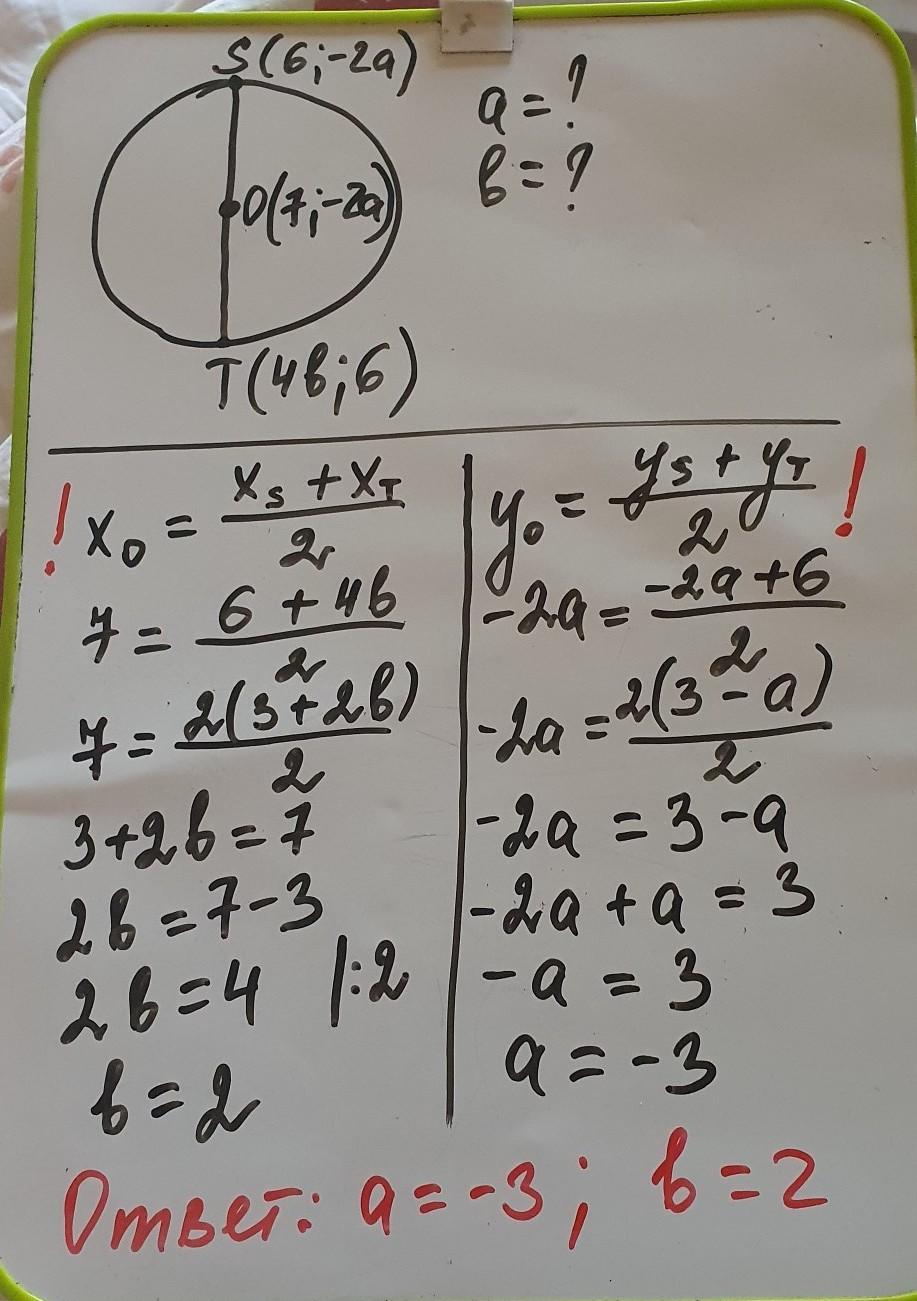 S(6;-2a)
a=?
в=?
O(7;-2a)
T(4в;6)
! x₀ = (x_S + x_T)/2
7 = (6 + 4в)/2
7 = 2(3+2в)/2
3+2в=7
2в=7-3
2в=4 |:2
в=2
y₀ = (y_S + y_T)/2 !
-2a = (-2a+6)/2
-2a = 2(3-a)/2
-2a = 3-a
-2a+a = 3
-a = 3
a = -3
Ответ: a=-3; в=2